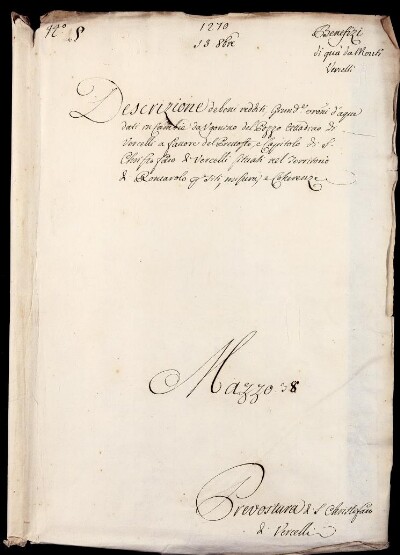 N.º 8
1270
13 8bre
Benefizi
di quà da Monti
Vercelli
Descrizione de beni redditi d'aque
dati da del Pozzo Cittadino di
Vercelli a favore del Preosto, e Capitolo di S.
Christoforo di Vercelli situati nel Territorio
di Roncarolo siti, misura, e Coherenze
Mazzo 38
Prevostura di S. Christoforo
di Vercelli